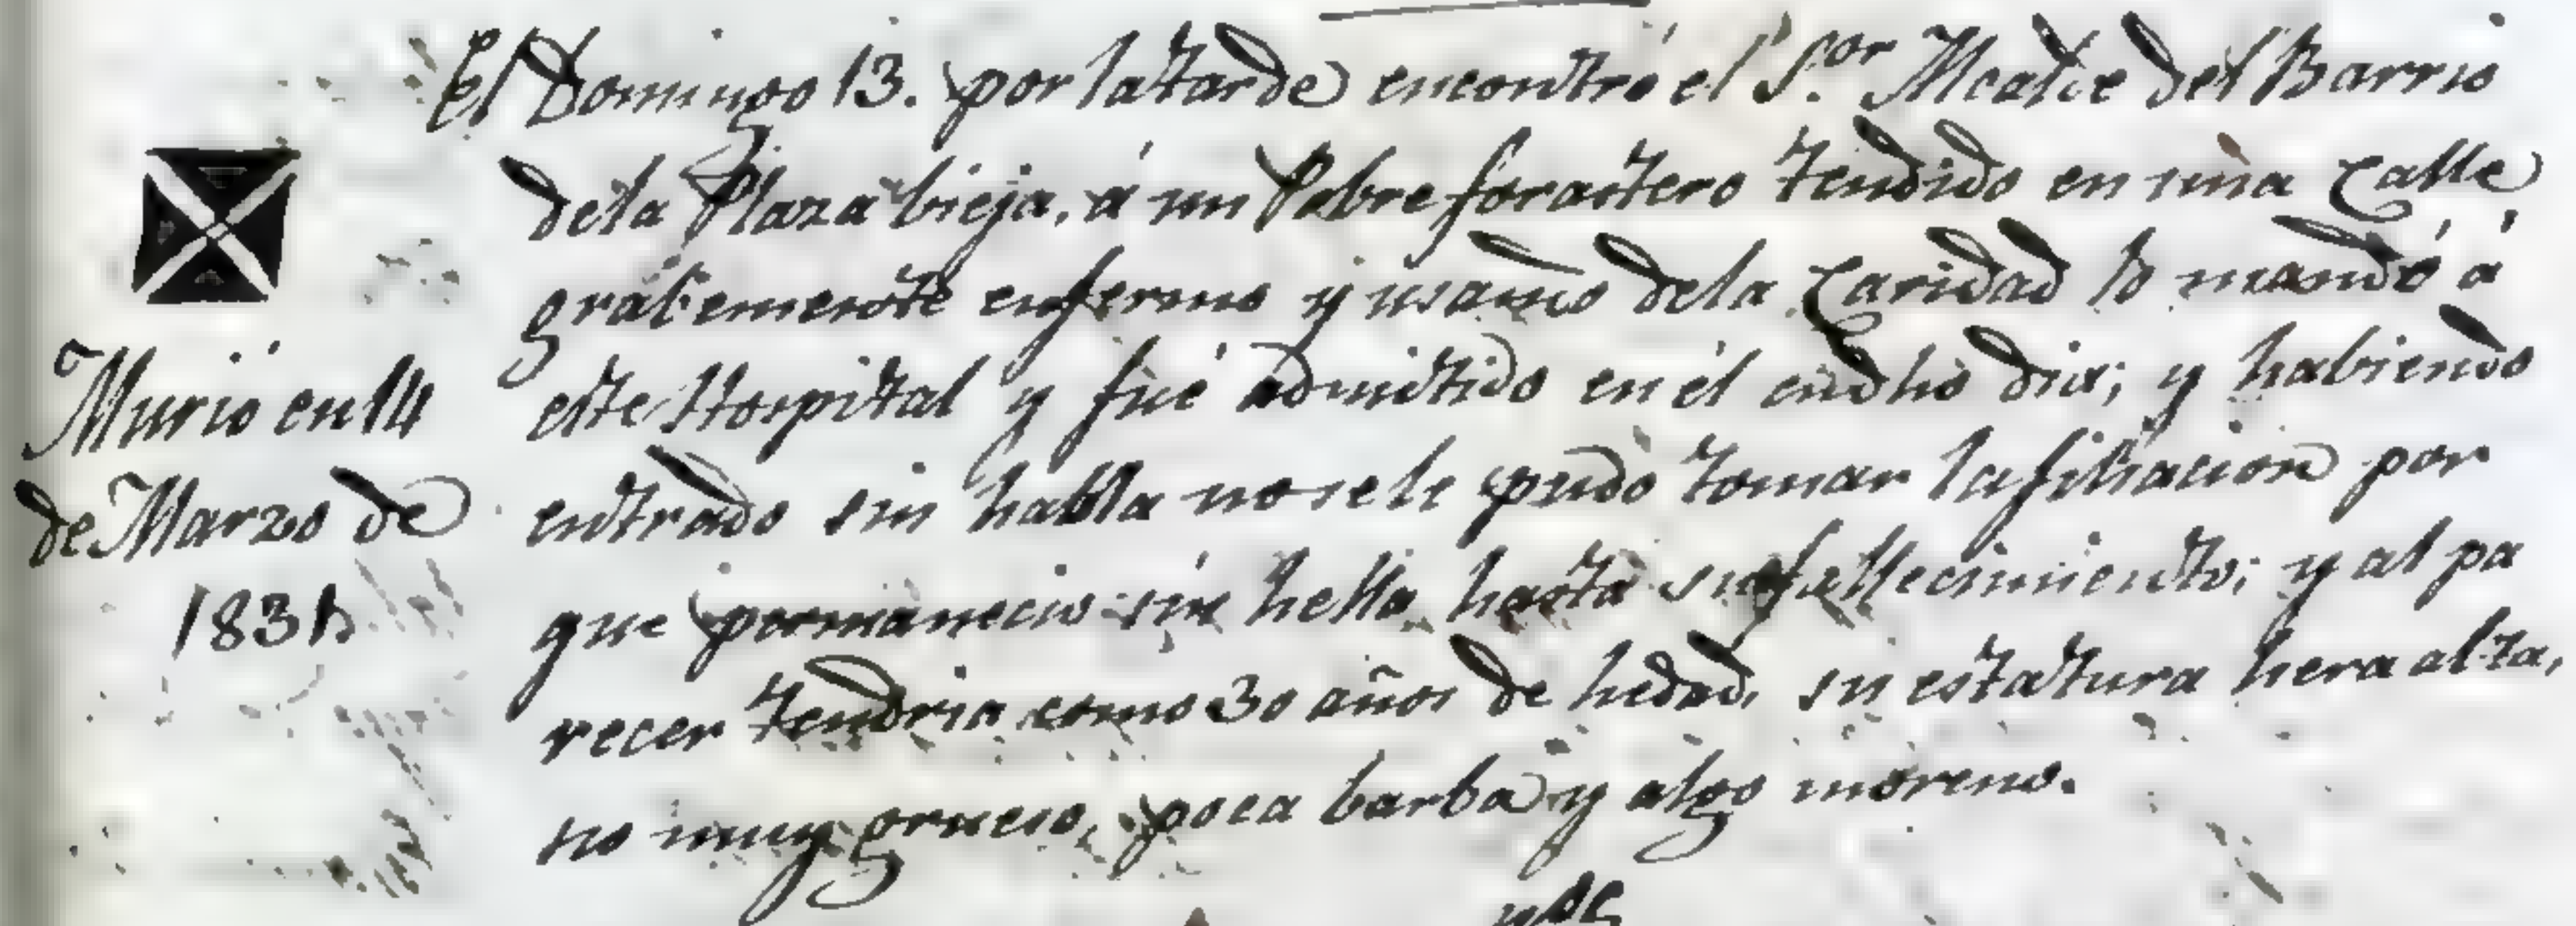 El Domingo 13. por la tarde encontró el S.or Alcalde del Barrio
dela Plaza bieja, á un Pobre forastero tendido en una Calle
grabemente enfermo y usando dela Caridad lo mandó á
este Hospital y fué admitido en él en dho dia; y habiendo
entrado sin habla no se le pudo tomar la filiacion por
que permanecio sin hella hasta su fallecimiento; y al pa
recer tendria como 30 años de hedad, su estatura hera alta,
no muy grueso, poca barba y algo moreno.
Murió en 14
de Marzo de
1831